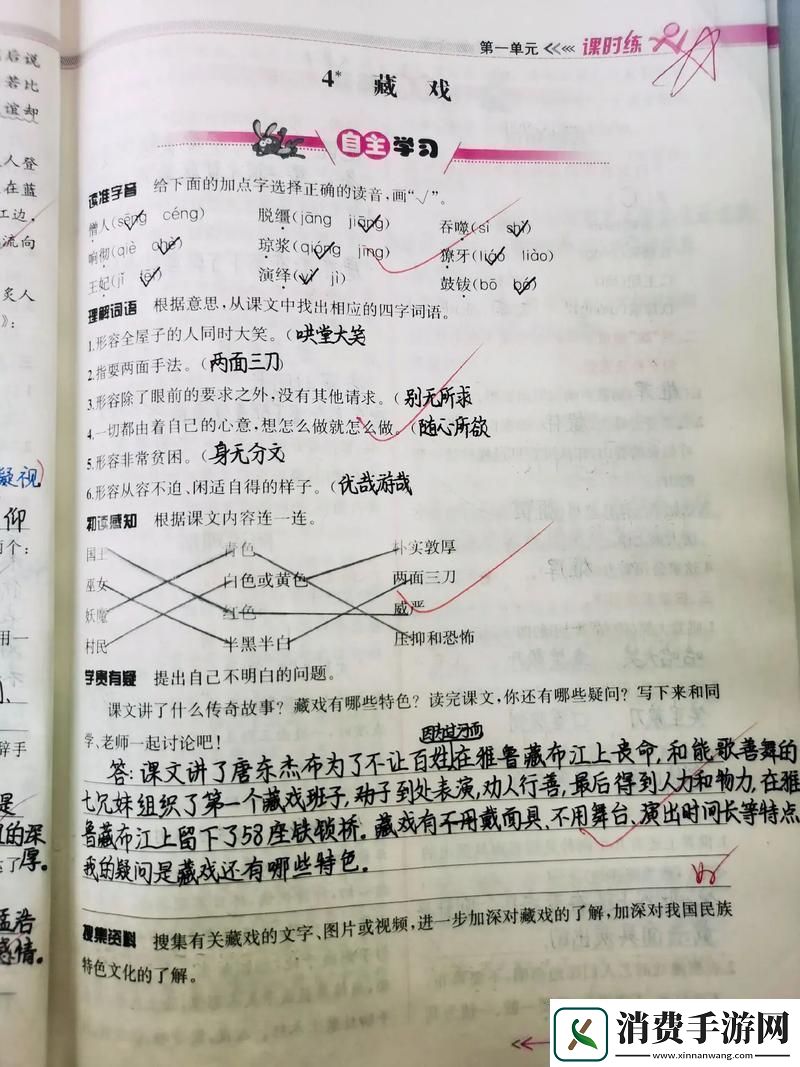 第一单元 课时练
4* 藏戏
自主学习
读准字音 给下面的加点字选择正确的读音,画“√”。
僧人(sēng céng) 脱缰(jāng jiāng) 吞噬(sì shì)
响彻(qiè chè) 琼浆(qióng jīng) 獠牙(liáo liào)
王妃(jī fēi) 演绎(yì jì) 鼓钹(bō bó)
理解词语 根据意思,从课文中找出相应的四字词语。
1.形容全屋子的人同时大笑。(哄堂大笑
2.指耍两面手法。(两面三刀)
3.形容除了眼前的要求之外,没有其他请求。(别无所求
4.一切都由着自己的心意,想怎么做就怎么做。(随心所欲
5.形容非常贫困。(身无分文
6.形容从容不迫、闲适自得的样子。(优哉游哉
初读感知 根据课文内容连一连。
国王 青色 朴实敦厚
巫女 白色或黄色 两面三刀
妖魔 红色 威严
村民 半黑半白 压抑和恐怖
学贵有疑 提出自己不明白的问题。
课文讲了什么传奇故事?藏戏有哪些特色?读完课文,你还有哪些疑问?写下来和同
学、老师一起讨论吧!
因为过河而
答:课文讲了唐东杰布为了不让百姓在雅鲁藏布江上丧命,和能歌善舞的
七兄妹组织了第一个藏戏班子,到处表演,劝人行善,最后得到人力和物力,在雅
鲁藏布江上留下了58座铁锁桥。藏戏有不用戴面具、不用舞台、演出时间长等特点
我的疑问是藏戏还有哪些特色。
搜集资料 搜集有关藏戏的文字、图片或视频,进一步加深对藏戏的了解,加深对我国民族
特色文化的了解。
后说
若比
谊却
人登
在蓝
江边,
流向
炙人
》:
凝视)
仰
两个:
用一
辞手
是
的深
厚。
孟浩
感情。
消费手游网
www.xinnanwang.com